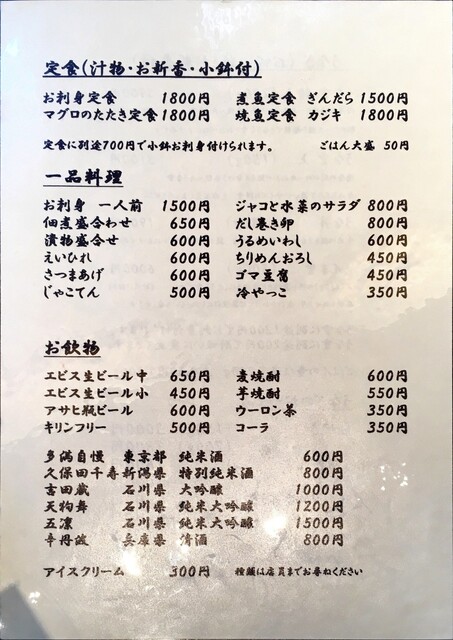 定食(汁物・お新香・小鉢付)
お刺身定食 1800円 煮魚定食 ぎんだら 1500円
マグロのたたき定食 1800円 焼魚定食 カジキ 1800円
定食に別途700円で小鉢お刺身付けられます。 ごはん大盛 50円
一品料理
お刺身 一人前 1500円 ジャコと水菜のサラダ 800円
佃煮盛合わせ 650円 だし巻き卵 800円
漬物盛合せ 600円 うるめいわし 600円
えいひれ 600円 ちりめんおろし 450円
さつまあげ 600円 ゴマ豆腐 450円
じゃこてん 500円 冷やっこ 350円
お飲物
エビス生ビール中 650円 麦焼酎 600円
エビス生ビール小 450円 芋焼酎 550円
アサヒ瓶ビール 600円 ウーロン茶 350円
キリンフリー 500円 コーラ 350円
多満自慢 東京都 純米酒 600円
久保田千寿 新潟県 特別純米酒 800円
吉田蔵 石川県 大吟醸 1000円
天狗舞 石川県 純米大吟醸 1200円
五凛 石川県 純米大吟醸 1500円
辛丹波 兵庫県 清酒 800円
アイスクリーム 300円 種類は店員までお尋ねください